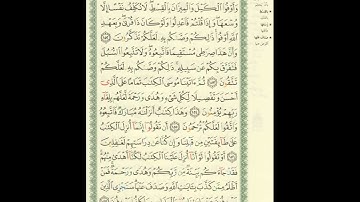 وَأَوْفُوا۟ ٱلْكَيْلَ وَٱلْمِيزَانَ بِٱلْقِسْطِ لَا نُكَلِّفُ نَفْسًا إِلَّا
وُسْعَهَا وَإِذَا قُلْتُمْ فَٱعْدِلُوا۟ وَلَوْ كَانَ ذَا قُرْبَىٰ وَبِعَهْدِ
ٱللَّهِ أَوْفُوا۟ ذَٰلِكُمْ وَصَّىٰكُم بِهِۦ لَعَلَّكُمْ تَذَكَّرُونَ ١٥٢
وَأَنَّ هَٰذَا صِرَٰطِى مُسْتَقِيمًا فَٱتَّبِعُوهُ وَلَا تَتَّبِعُوا۟ ٱلسُّبُلَ
فَتَفَرَّقَ بِكُمْ عَن سَبِيلِهِۦ ذَٰلِكُمْ وَصَّىٰكُم بِهِۦ لَعَلَّكُمْ
تَتَّقُونَ ١٥٣ ثُمَّ ءَاتَيْنَا مُوسَى ٱلْكِتَٰبَ تَمَامًا عَلَى ٱلَّذِىٓ
أَحْسَنَ وَتَفْصِيلًا لِّكُلِّ شَىْءٍ وَهُدًى وَرَحْمَةً لَّعَلَّهُم بِلِقَآءِ
رَبِّهِمْ يُؤْمِنُونَ ١٥٤ وَهَٰذَا كِتَٰبٌ أَنزَلْنَٰهُ مُبَارَكٌ فَٱتَّبِعُوهُ
وَٱتَّقُوا۟ لَعَلَّكُمْ تُرْحَمُونَ ١٥٥ أَن تَقُولُوٓا۟ إِنَّمَآ أُنزِلَ ٱلْكِتَٰبُ
عَلَىٰ طَآئِفَتَيْنِ مِن قَبْلِنَا وَإِن كُنَّا عَن دِرَاسَتِهِمْ لَغَٰفِلِينَ
١٥٦ أَوْ تَقُولُوا۟ لَوْ أَنَّآ أُنزِلَ عَلَيْنَا ٱلْكِتَٰبُ لَكُنَّآ أَهْدَىٰ مِنْهُمْ
فَقَدْ جَآءَكُم بَيِّنَةٌ مِّن رَّبِّكُمْ وَهُدًى وَرَحْمَةٌ فَمَنْ
أَظْلَمُ مِمَّن كَذَّبَ بِـَٔايَٰتِ ٱللَّهِ وَصَدَفَ عَنْهَا سَنَجْزِى ٱلَّذِينَ